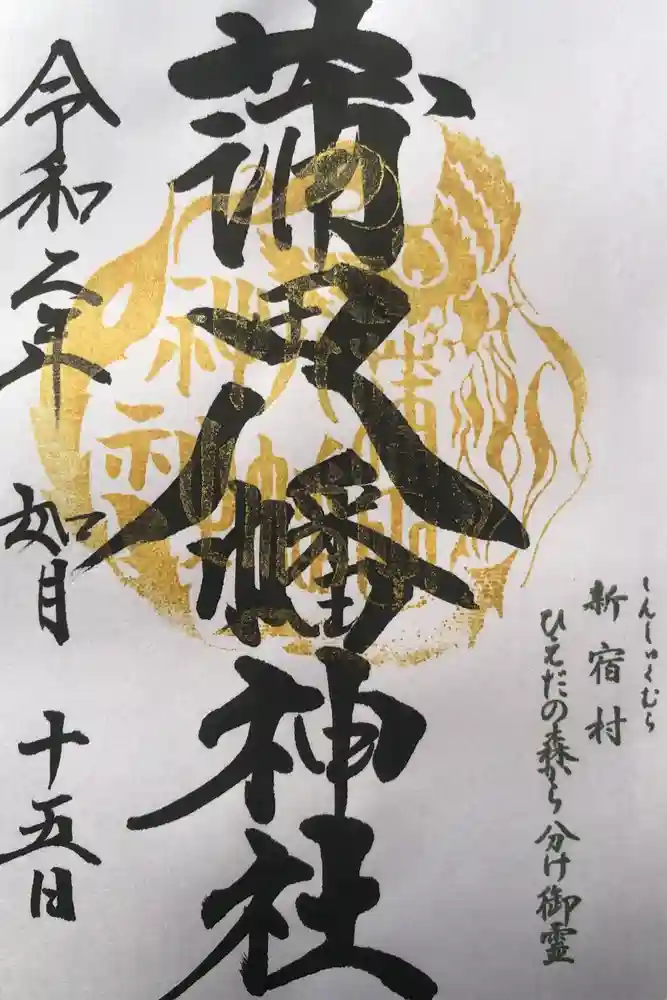 しんしゅくむら
新宿村
ひえだの森から分け御霊
蒲田八幡神社
令和二年 如月 十五日